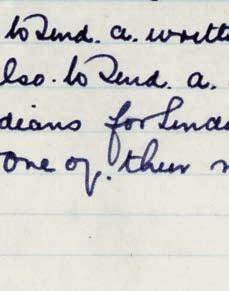 to Send. a. writt
lso. to Send. a.
dians for Send
one of. their